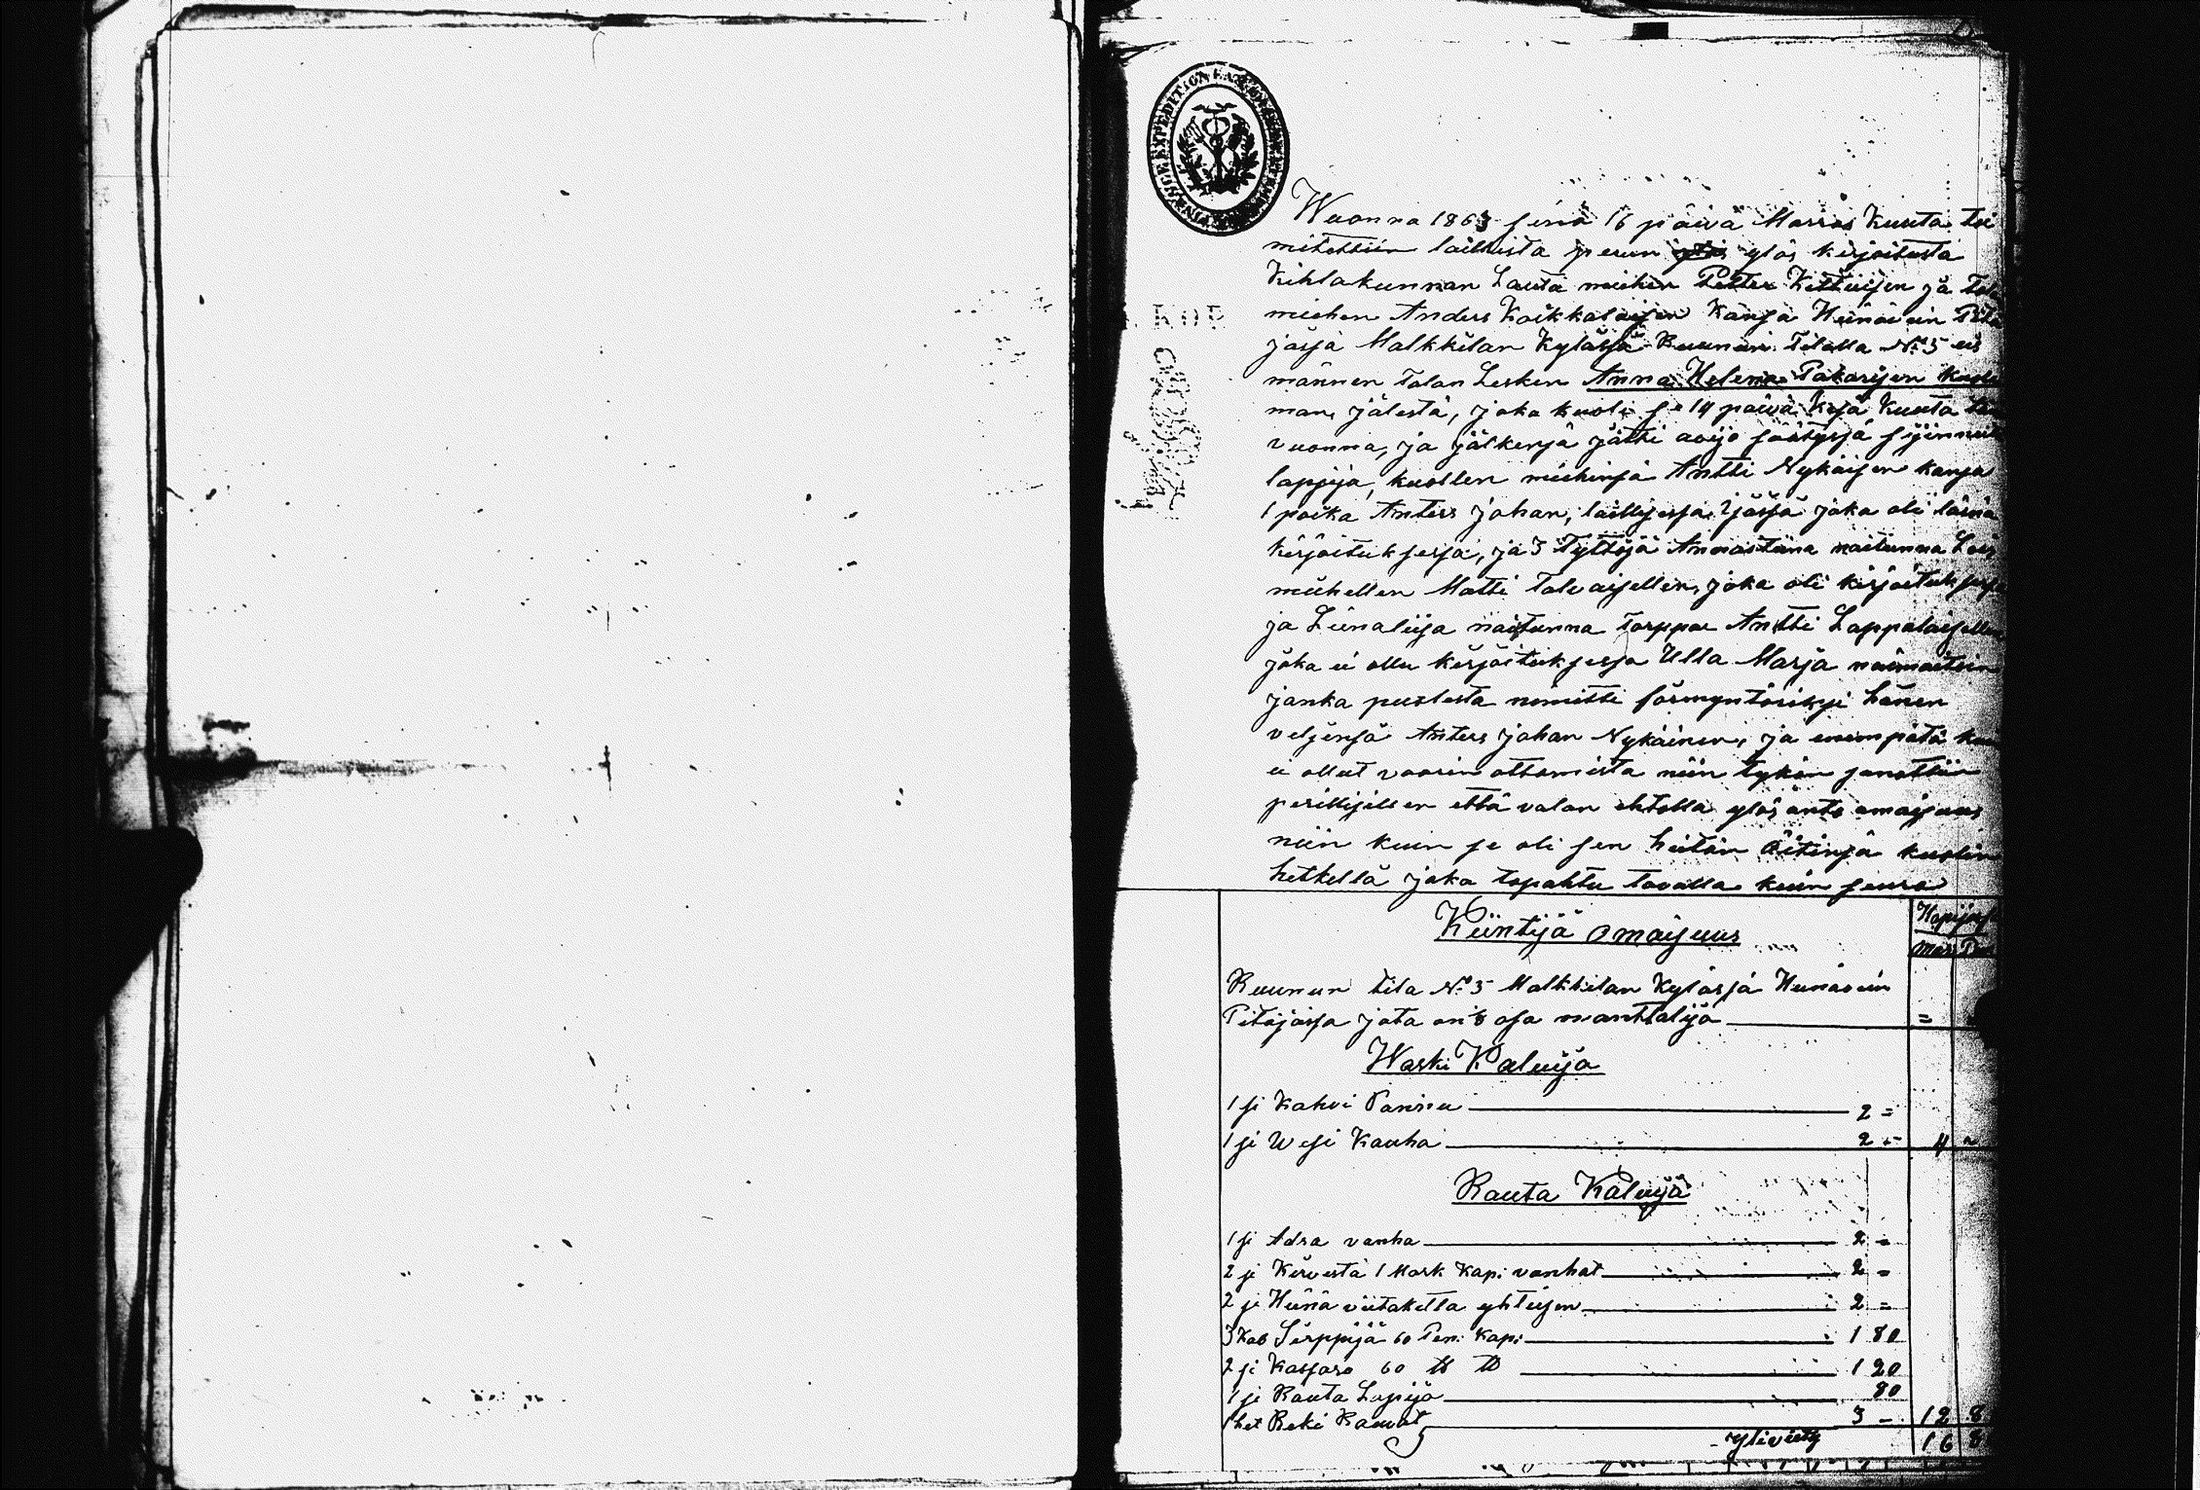 FINANCE EXPEDITION
KOP
Wuonna 1863 sinä 16 päivä Marras Kuuta toi
mitettiin laillista perun ylös kirjoitusta
Kihlakunnan Lauta miehen Petter Kettuisen ja
miehen Anders Koikkalaisen Kansa Heinävein Pitä
jäsä Malkkilan Kyläsä Ruunun Tilalla No 5 en
männen Talan Lesken Anna Helena Pakarisen kuole
man, jälestä, joka kuoli se 19 päivä Kesä Kuuta
vuonna, ja jälkensä jätti avijo säätysä
lapsija, kuollen miehensä Antti Nykäisen kansa
1 poika Anters Johan, laillisesa ijäsä joka oli läsnä
kirjoituksesa, ja 3 Tyttöjä Annastiina naitunna
miehellen Matti Talvaisellen, joka oli kirjoituksesa
ja Liinaliisa naitunna Torppar Antti Lappalaisellen
joka ei ollu kirjoituksesa Ulla Marja naimatoin
janka puolesta nimitti förmyntäriksi hänen
veljensä Anters Johan Nykäinen, ja enempätä
ei ollut vaarin ottamista niin tykön sanottiin
perillisillen että valan ehtolla ylös anto omaisuus
niin kuin se oli sen heitän äitinsä kuolin
hetkellä joka tapahtu tavalla kuin seura
Kiintijä Omaisuus
Mar
Ruunun tila No 5 Malkkilan Kyläsä Heinävein
Pitäjäsä jota on 1/8 osa manttalija =
Waski Kaluija
1 si Kahvi Pannu 2 =
1 si Wesi Kauha 2 - 4 -
Rauta Kaluja
1 si Adra vanha 2 =
2 si Kirvestä 1 Mark Kapi vanhat 2 =
2 si Heinä viitaketta yhteisen 2 =
3 Kap Sirppijä 60 Pen: Kapi 1 80
2 si Kassara 60 1 20
1 si Rauta Lapija 80
1 het Reki Rauvat 3 - 12 8
yliviety 16 8